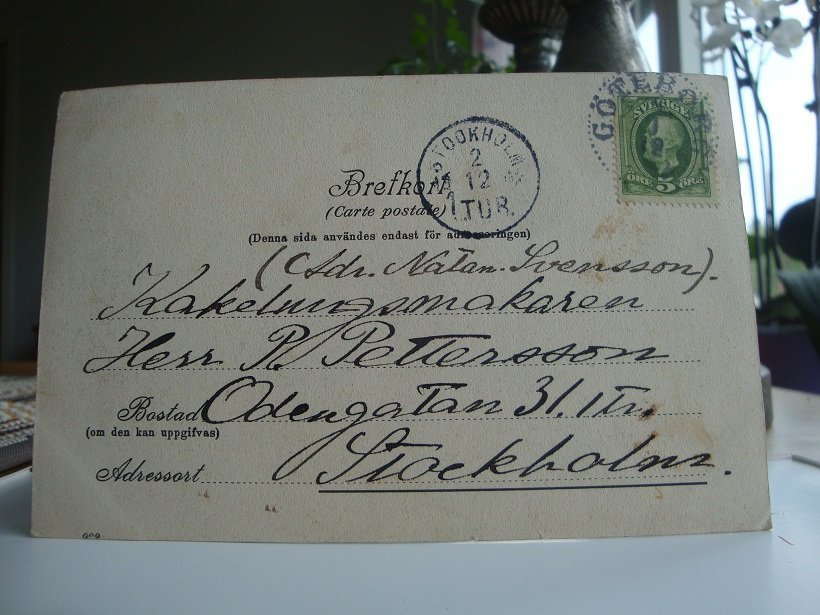 GÖTEBORG
SVERIGE
5
ÖRE ÖRE
STOCKHOLM
2
12
1.TUR.
Brefkort
(Carte postale)
(Denna sida användes endast för adresseringen)
(Adr. Natan. Svensson).
Kakelungsmakaren
Herr P. Pettersson
Bostad Odengatan 31. 1 tr.
(om den kan uppgifvas)
Adressort Stockholm.